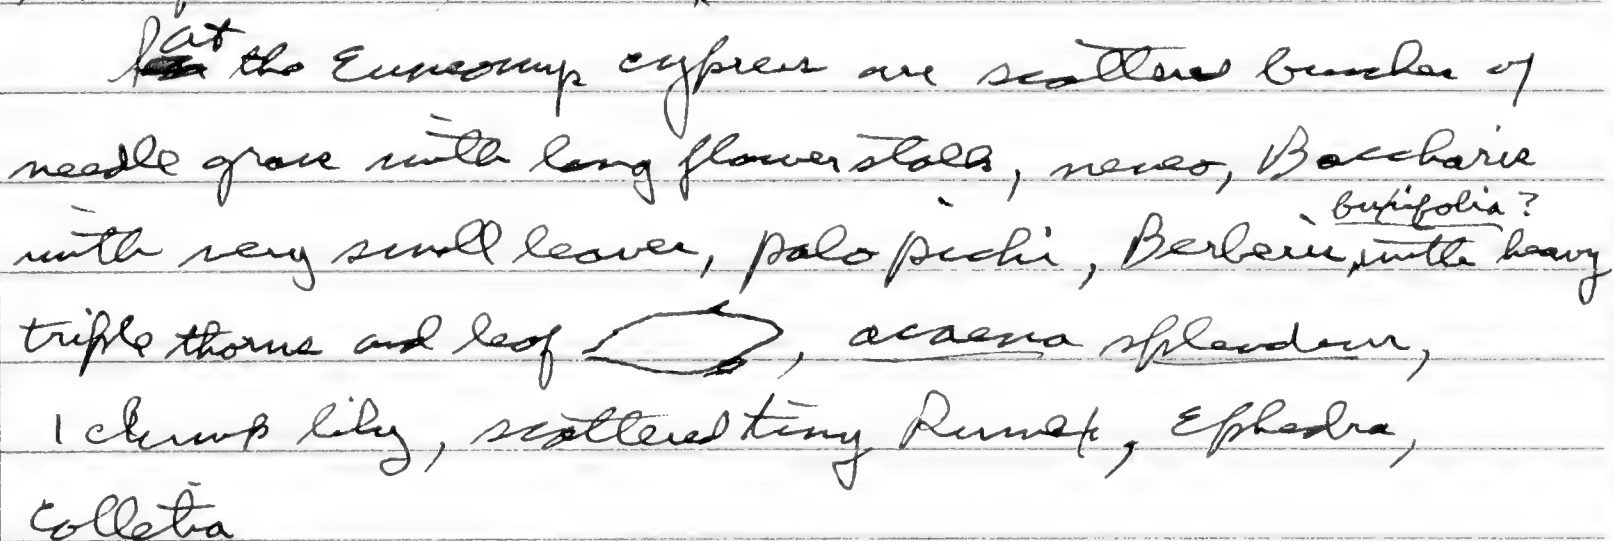 at the Euncomp cypress are scattered bunches of
needle grass with long flower stalks, neneo, Baccharis
with very small leaves, palo pichi, Berberis buxifolia?, with heavy
triple thorns and leaf , acaena splendens,
1 clump lily, scattered tiny Rumex, Ephedra,
Colletia